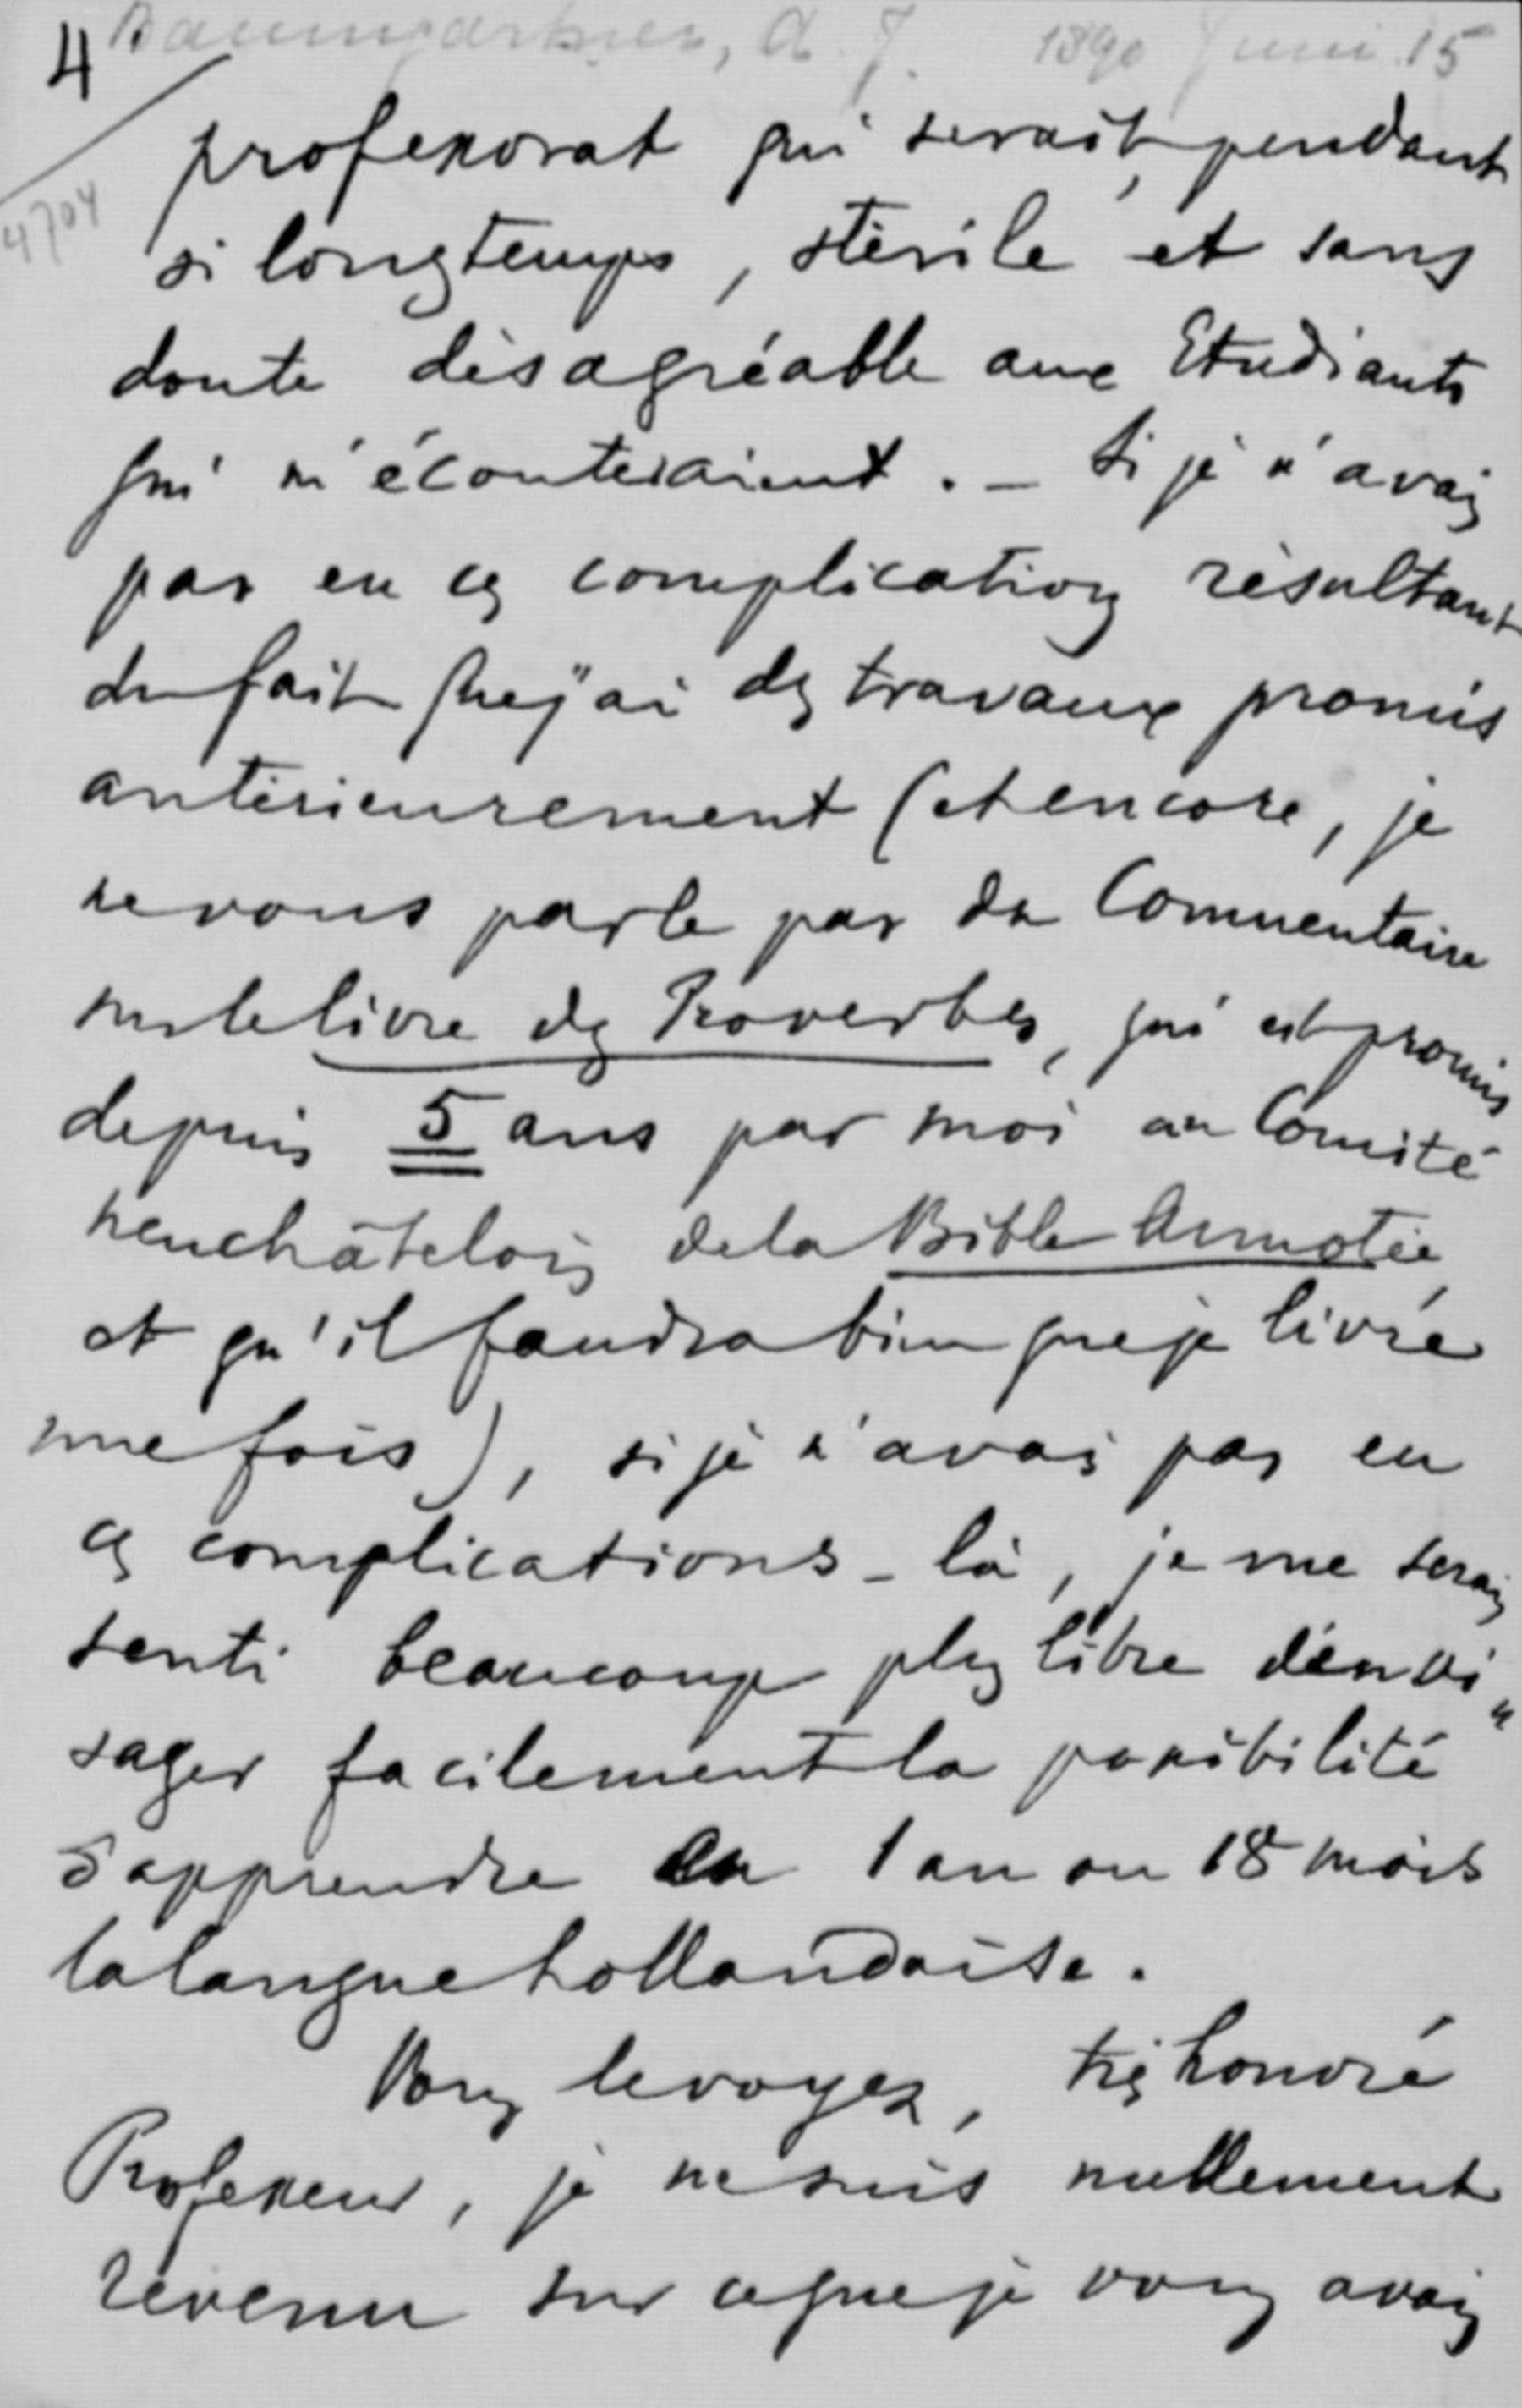 4 Baumgartner, A. J. 1890 Juni 15
4704
professorat qui serait, pendant
si longtemps, stérile et sans
doute désagréable aux Etudiants
qui m'écouteraient. — Si je n'avais
pas eu ces complications résultant
du fait que j'ai des travaux promis
antérieurement (et encore, je
ne vous parle pas du Commentaire
sur le livre des Proverbes, qui est promis
depuis 5 ans par moi au Comité
neuchâtelois de la Bible Annotée
et qu'il faudra bien que je livre
une fois), si je n'avais pas eu
ces complications-là, je me serais
senti beaucoup plus libre d'envi-
sager facilement la possibilité
d'apprendre en 1 an ou 18 mois
la langue hollandaise.
Vous le voyez, très honoré
Professeur, je ne suis nullement
revenu sur ce que je vous avais